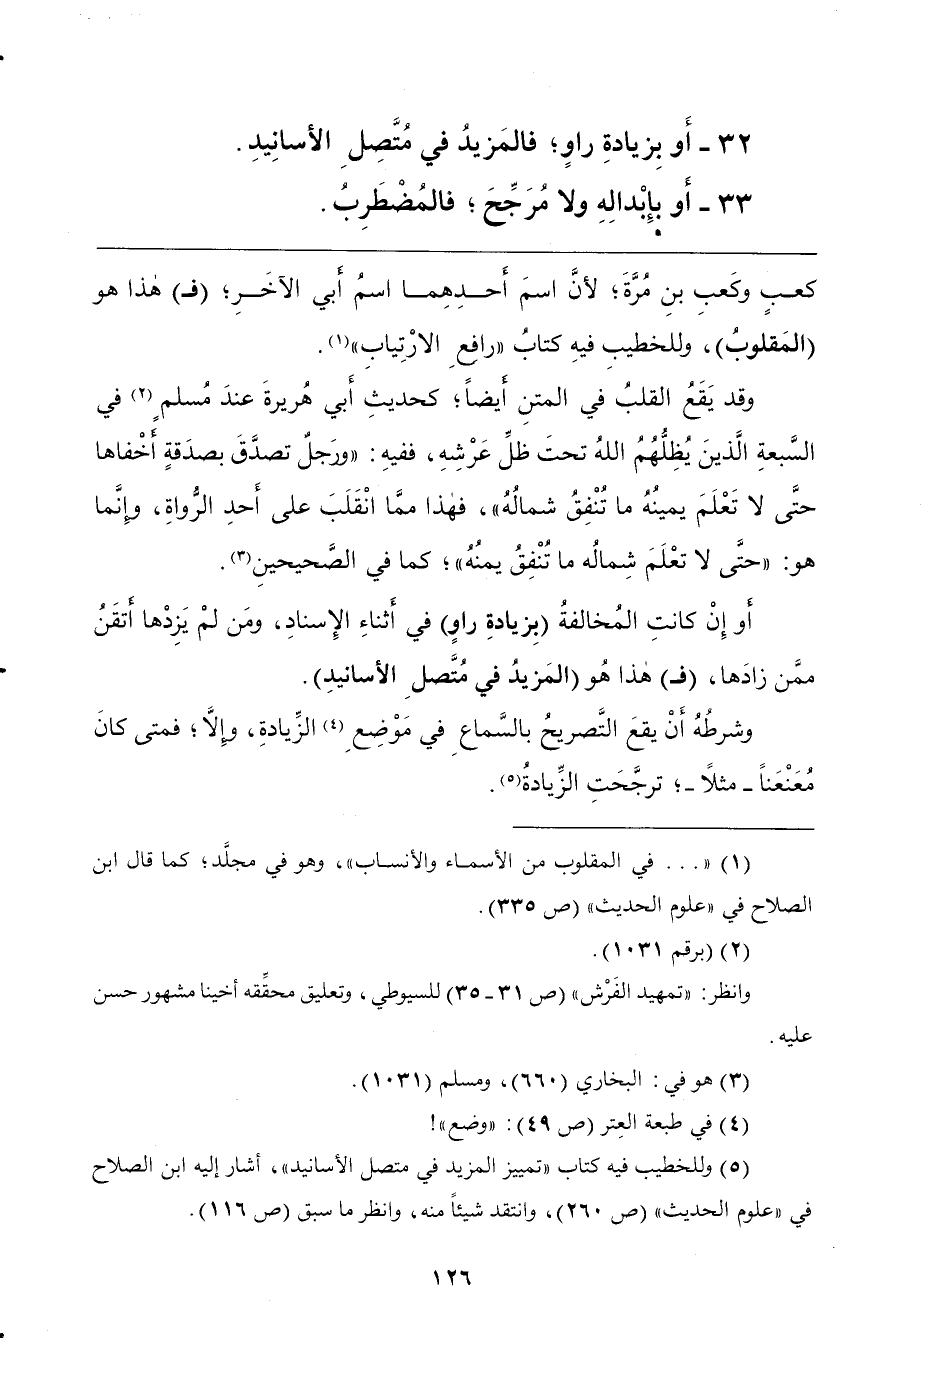 ٣٢ ـ أَو بِزيادةِ راوٍ؛ فالمَزيدُ في مُتَّصِلِ الأسانِيدِ.
٣٣ ـ أَو بإِبْدالِهِ ولا مُرَجِّحَ؛ فالمُضْطَرِبُ.
كعبٍ وكَعبِ بن مُرَّةَ؛ لأنَّ اسمَ أَحــدِهِمــا اسمُ أَبي الآخَــرِ؛ (فـ) هٰذا هو
(المَقلوبُ)، وللخطيبِ فيهِ كتابُ «رافعِ الارْتِيابِ»(١).
وقد يَقَعُ القلبُ في المتنِ أَيضاً؛ كحديثِ أَبي هُريرةَ عندَ مُسلمٍ(٢) في
السَّبعةِ الَّذينَ يُظِلُّهُمُ اللهُ تحتَ ظلِّ عَرْشِهِ، ففيهِ: «ورَجلٌ تصدَّقَ بصدَقةٍ أَخْفاها
حتَّى لا تَعْلَمَ يمينُهُ ما تُنْفِقُ شمالُهُ»، فهٰذا ممَّا انْقَلَبَ على أَحدِ الرُّواةِ، وإِنَّما
هو: «حتَّى لا تعْلَمَ شِمالُه ما تُنْفِقُ يمنُهُ»؛ كما في الصَّحيحينِ(٣).
أَو إِنْ كانتِ المُخالفةُ (بزيادةِ راوٍ) في أَثناءِ الإِسنادِ، ومَن لمْ يَزِدْها أَتقَنُ
ممَّن زادَها، (فـ) هٰذا هُو (المَزيدُ في مُتَّصلِ الأسانيدِ).
وشرطُهُ أَنْ يقعَ التَّصريحُ بالسَّماعِ في مَوْضِعِ(٤) الزِّيادةِ، وإِلَّا؛ فمتى كانَ
مُعَنْعَناً ـ مثلاً ـ؛ ترجَّحَتِ الزِّيادةُ(٥).
(١) «... في المقلوب من الأسماء والأنساب»، وهو في مجلَّد؛ كما قال ابن
الصلاح في «علوم الحديث» (ص ٣٣٥).
(٢) (برقم ١٠٣١).
وانظر: «تمهيد الفَرْش» (ص ٣١ ـ ٣٥) للسيوطي، وتعليق محقِّقه أخينا مشهور حسن
عليه.
(٣) هو في: البخاري (٦٦٠)، ومسلم (١٠٣١).
(٤) في طبعة العتر (ص ٤٩): «وضع»!
(٥) وللخطيب فيه كتاب «تمييز المزيد في متصل الأسانيد»، أشار إليه ابن الصلاح
في «علوم الحديث» (ص ٢٦٠)، وانتقد شيئاً منه، وانظر ما سبق (ص ١١٦).
١٢٦